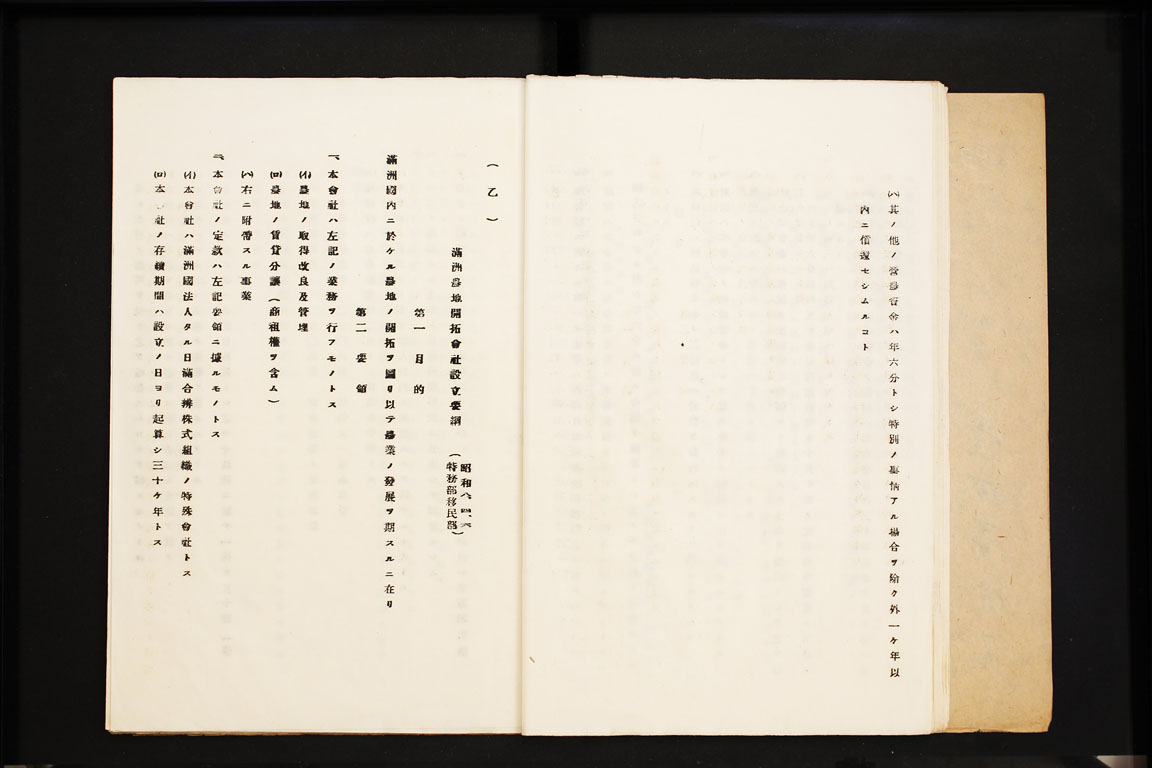 (ハ)其ノ他ノ營農資金ハ年六分トシ特別ノ事情アル場合ヲ除ク外一ケ年以
內ニ償還セシムルコト
(乙)
滿洲農地開拓會社設立要綱
昭和八、四、六
(特務部移民部)
第一 目的
滿洲國內ニ於ケル農地ノ開拓ヲ圖リ以テ農業ノ發展ヲ期スルニ在リ
第二 要領
一、本會社ハ左記ノ業務ヲ行フモノトス
(イ)農地ノ取得改良及管理
(ロ)農地ノ賃貸分讓(商租權ヲ含ム)
(ハ)右ニ附帶スル事業
二、本會社ノ定款ハ左記要領ニ據ルモノトス
(イ)本會社ハ滿洲國法人タル日滿合辨株式組織ノ特殊會社トス
(ロ)本 社ノ存續期間ハ設立ノ日ヨリ起算シ三十ケ年トス